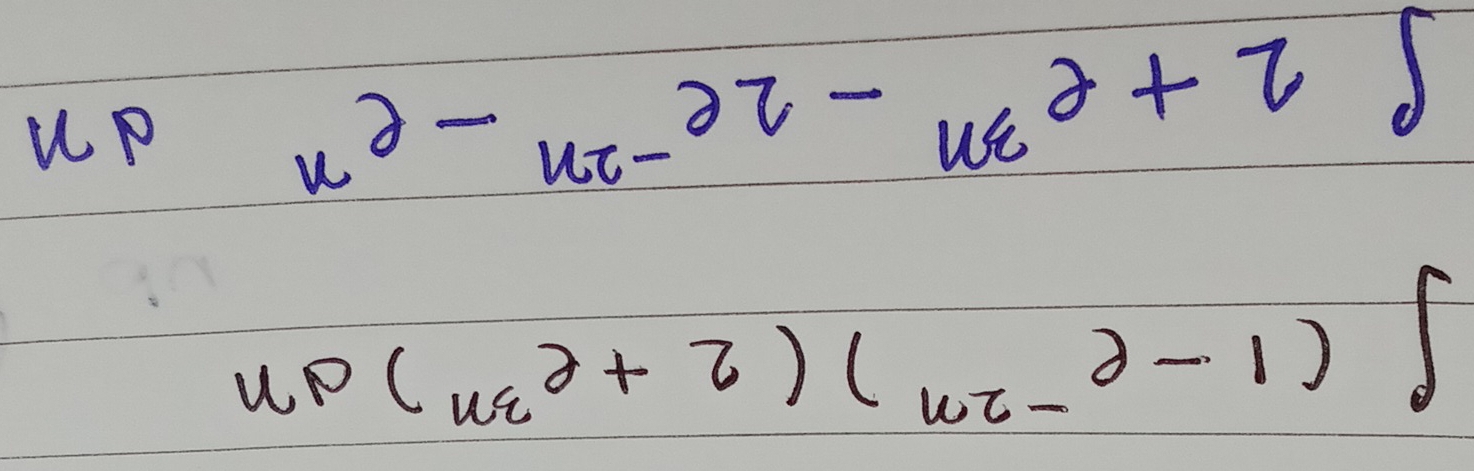 ∫ (1 - e^{-2x})(2 + e^{3x}) dx
∫ 2 + e^{3x} - 2e^{-2x} - e^{x} dx